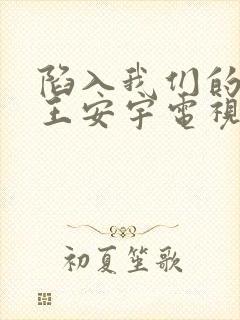 陷入我们的
王安宇電視
初夏笙歌